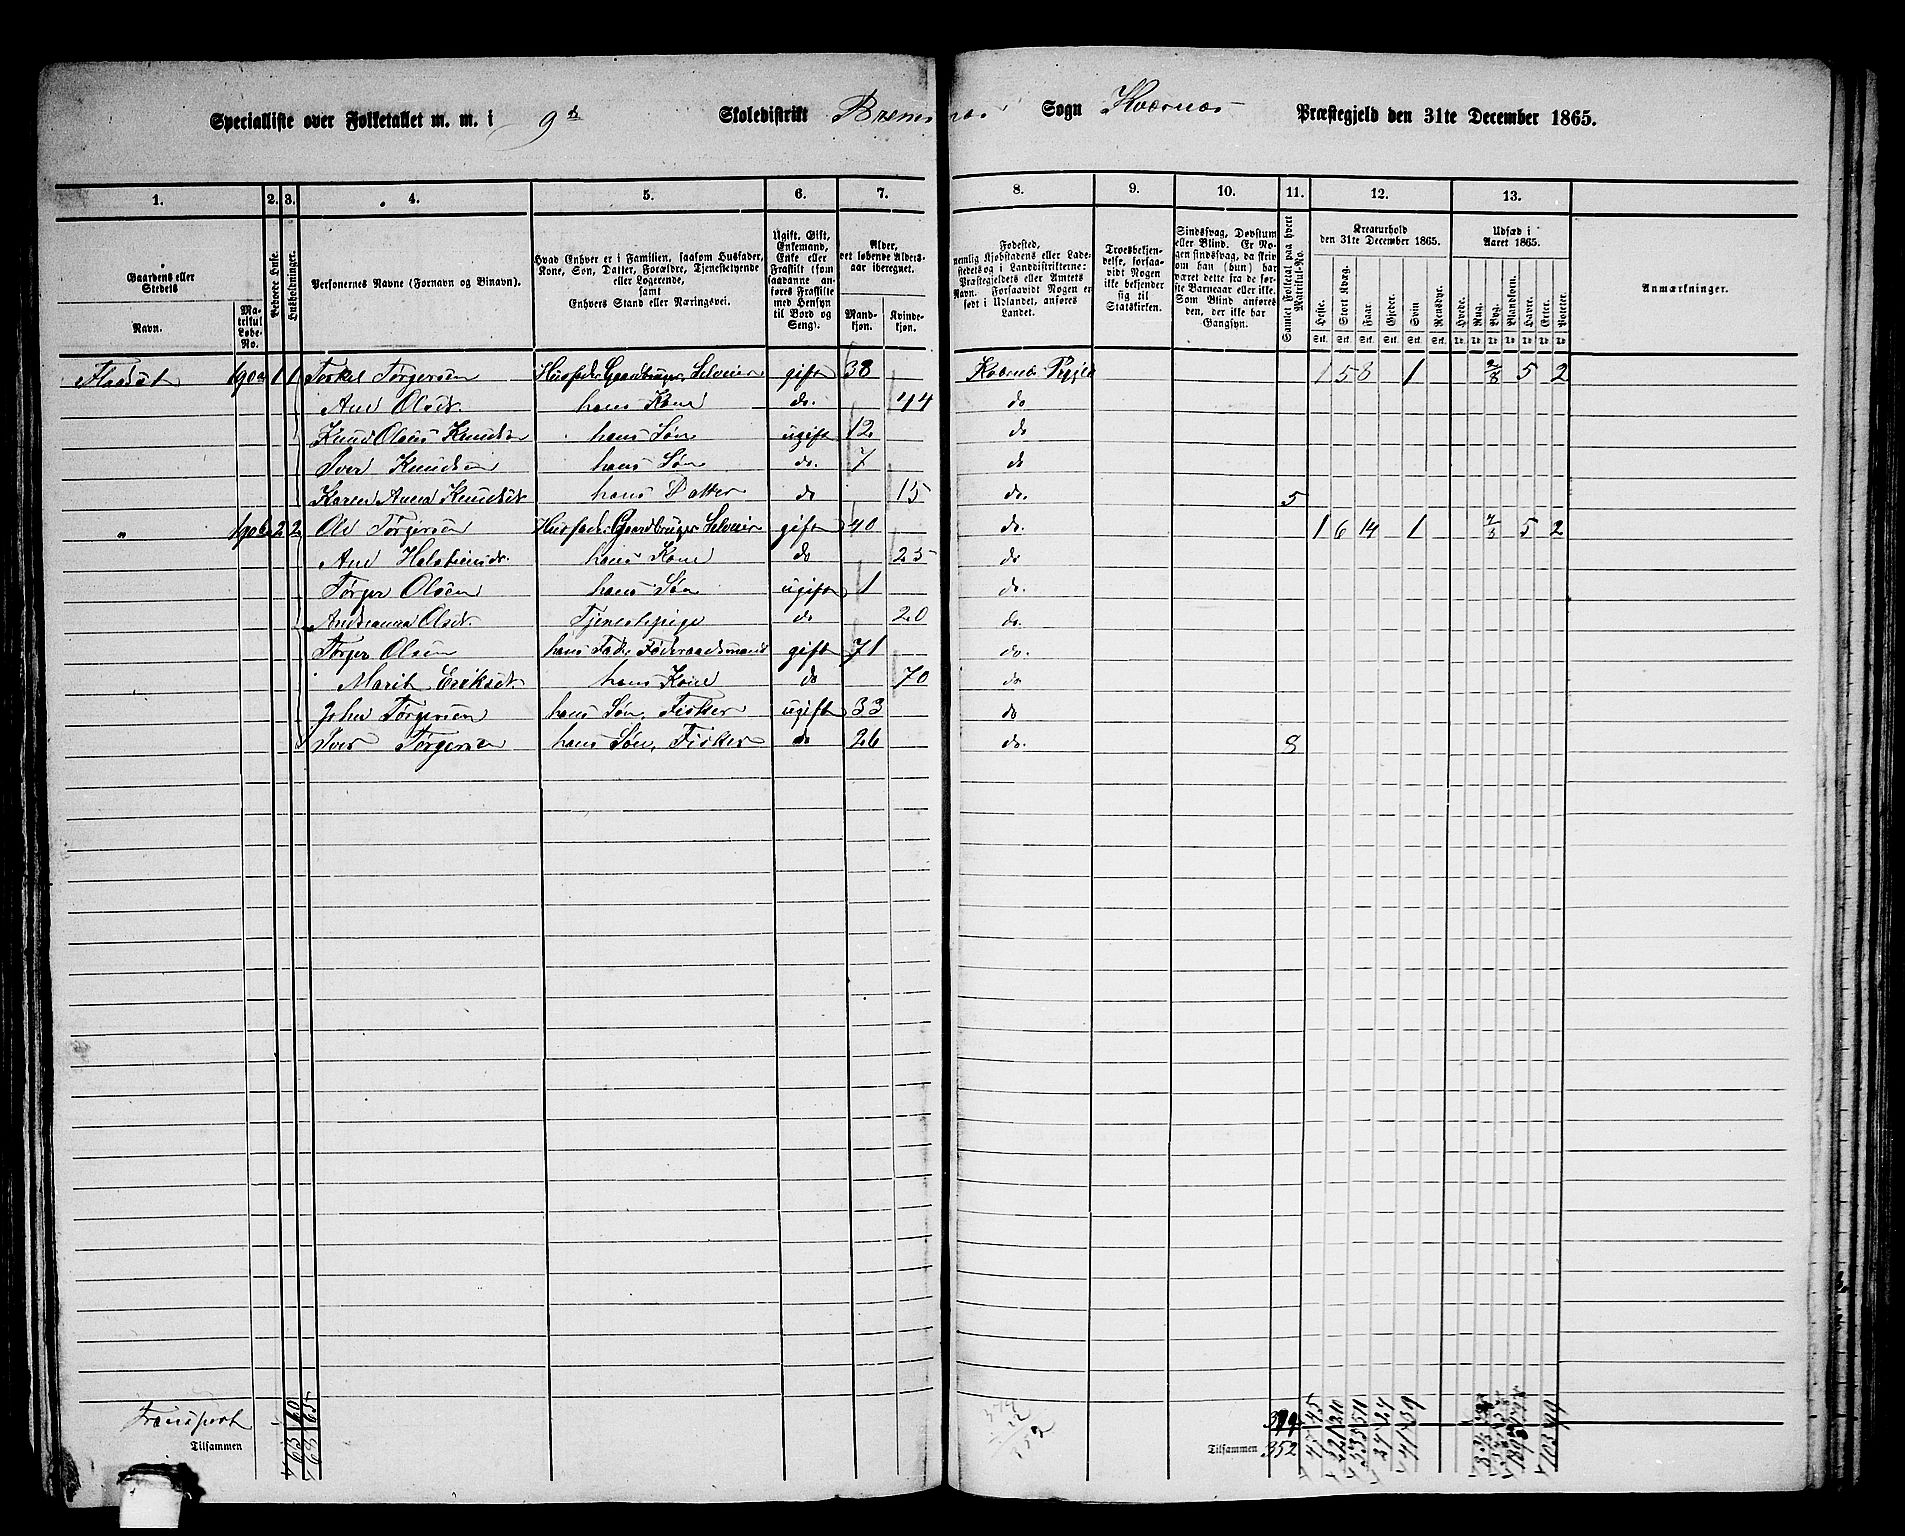 Specialliste over Folketallet m. m. i 9de Skoledistrikt Bremsnæs Sogn Kværnæs Præstegjeld den 31te December 1865.
1. 2. 3. 4. 5. 6. 7. 8. 9. 10. 11. 12. 13.
Gaardens eller Stedets Navn.
Matrikul Løbe-No.
Beboede Huse.
Husholdninger.
Personernes Navne (Fornavn og Binavn).
Hvad Enhver er i Familien, saasom Husfader, Kone, Søn, Datter, Forældre, Tjenestetyende eller Logerende, samt Enhvers Stand eller Næringsvei.
Ugift, Gift, Enkemand, Enke eller Fraskilt (som saadanne anføres Fraskilte med Hensyn til Bord og Seng).
Alder, det løbende Alders-aar iberegnet.
Mandkjøn. Kvindekjøn.
Fødested, nemlig Kjøbstadens eller Ladestedets og i Landdistrikterne: Præstegjeldets eller Amtets Navn. Forsaavidt Nogen er født i Udlandet, anføres Landet.
Troesbekjendelse, forsaavidt Nogen ikke bekjender sig til Statskirken.
Sindssvag, Døvstum eller Blind. Er Nogen sindssvag, da skriv om han (hun) har været dette fra de første Barneaar eller ikke. Som Blind anføres den, der ikke har Gangsyn.
Samlet Folketal paa hvert Matrikul-No.
Kreaturhold den 31te December 1865.
Heste. Stort Kvæg. Faar. Gjeder. Svin. Rensdyr.
Udsæd i Aaret 1865.
Hvede. Rug. Byg. Blandkorn. Havre. Erter. Poteter.
Anmærkninger.
190a 1 1 Terkel Torgersen Husfader Gaardbruger, Selveier gift 38 Kværnæs Prgjld 1 5 6 1 2/8 5 2
Ane Olsdt. hans Kone do. 44 do
Knud Olaus Knudsen hans Søn ugift 12 do
Iver Knudsen hans Søn do. 7 do
Karen Anna Knudsdt. hans Datter do 15 do. 5
" 190b 2 2 Ole Torgersen Husfader, Gaardbruger Selveier gift 40 do. 1 6 14 1 5 2
Ane Halsteinsdt. hans Kone do 25 do
Torger Olsen hans Søn ugift 1 do.
Andreanna Olsdt. Tjenestepige do 20 do.
Torger Olsen hans Fader Føderaadsmand gift 71 do.
Marit Eriksdt. hans Kone do 70 do
John Torgersen hans Søn, Fisker ugift 33 do
Iver Torgersen hans Søn, Fisker do 26 do. 8
Transport 60 65 45 210 24 39
Tilsammen 63 68 Tilsammen 352 47 41